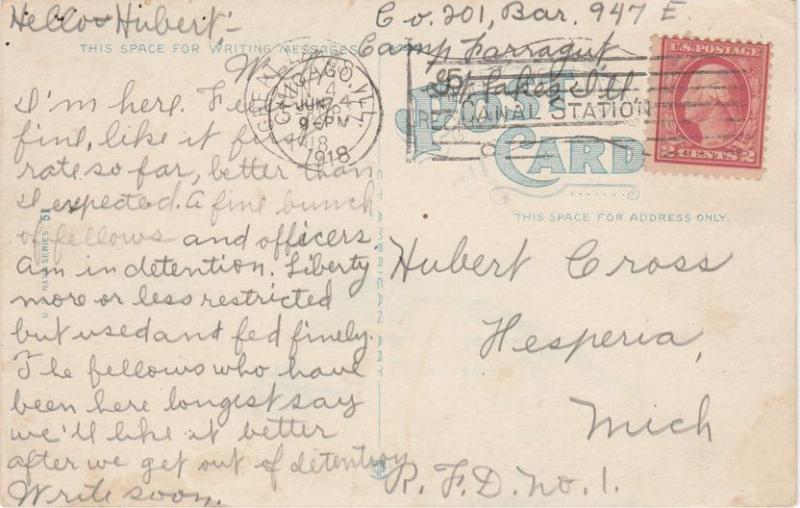 Hello Hubert,-
Co. 201, Bar. 947 E.
Camp Farragut,
Gt. Lakes, Ill
THIS SPACE FOR WRITING MESSAGES
Well
I'm here. Feel
fine, like it first
rate so far, better than
I expected. A fine bunch
of fellows and officers
Am in detention. Liberty
more or less restricted
but used and fed finely.
The fellows who have
been here longest say
we'll like it better
after we get out of detention
Write soon.
U.S. NAVY SERIES 51
AMERICAN ART
CHICAGO, ILL.
JUN 4
9 PM
1918
CANAL STATION
U.S. POSTAGE
2 CENTS 2
POST
CARD
THIS SPACE FOR ADDRESS ONLY.
Hubert Cross
Hesperia,
Mich
R.F.D. No. 1.